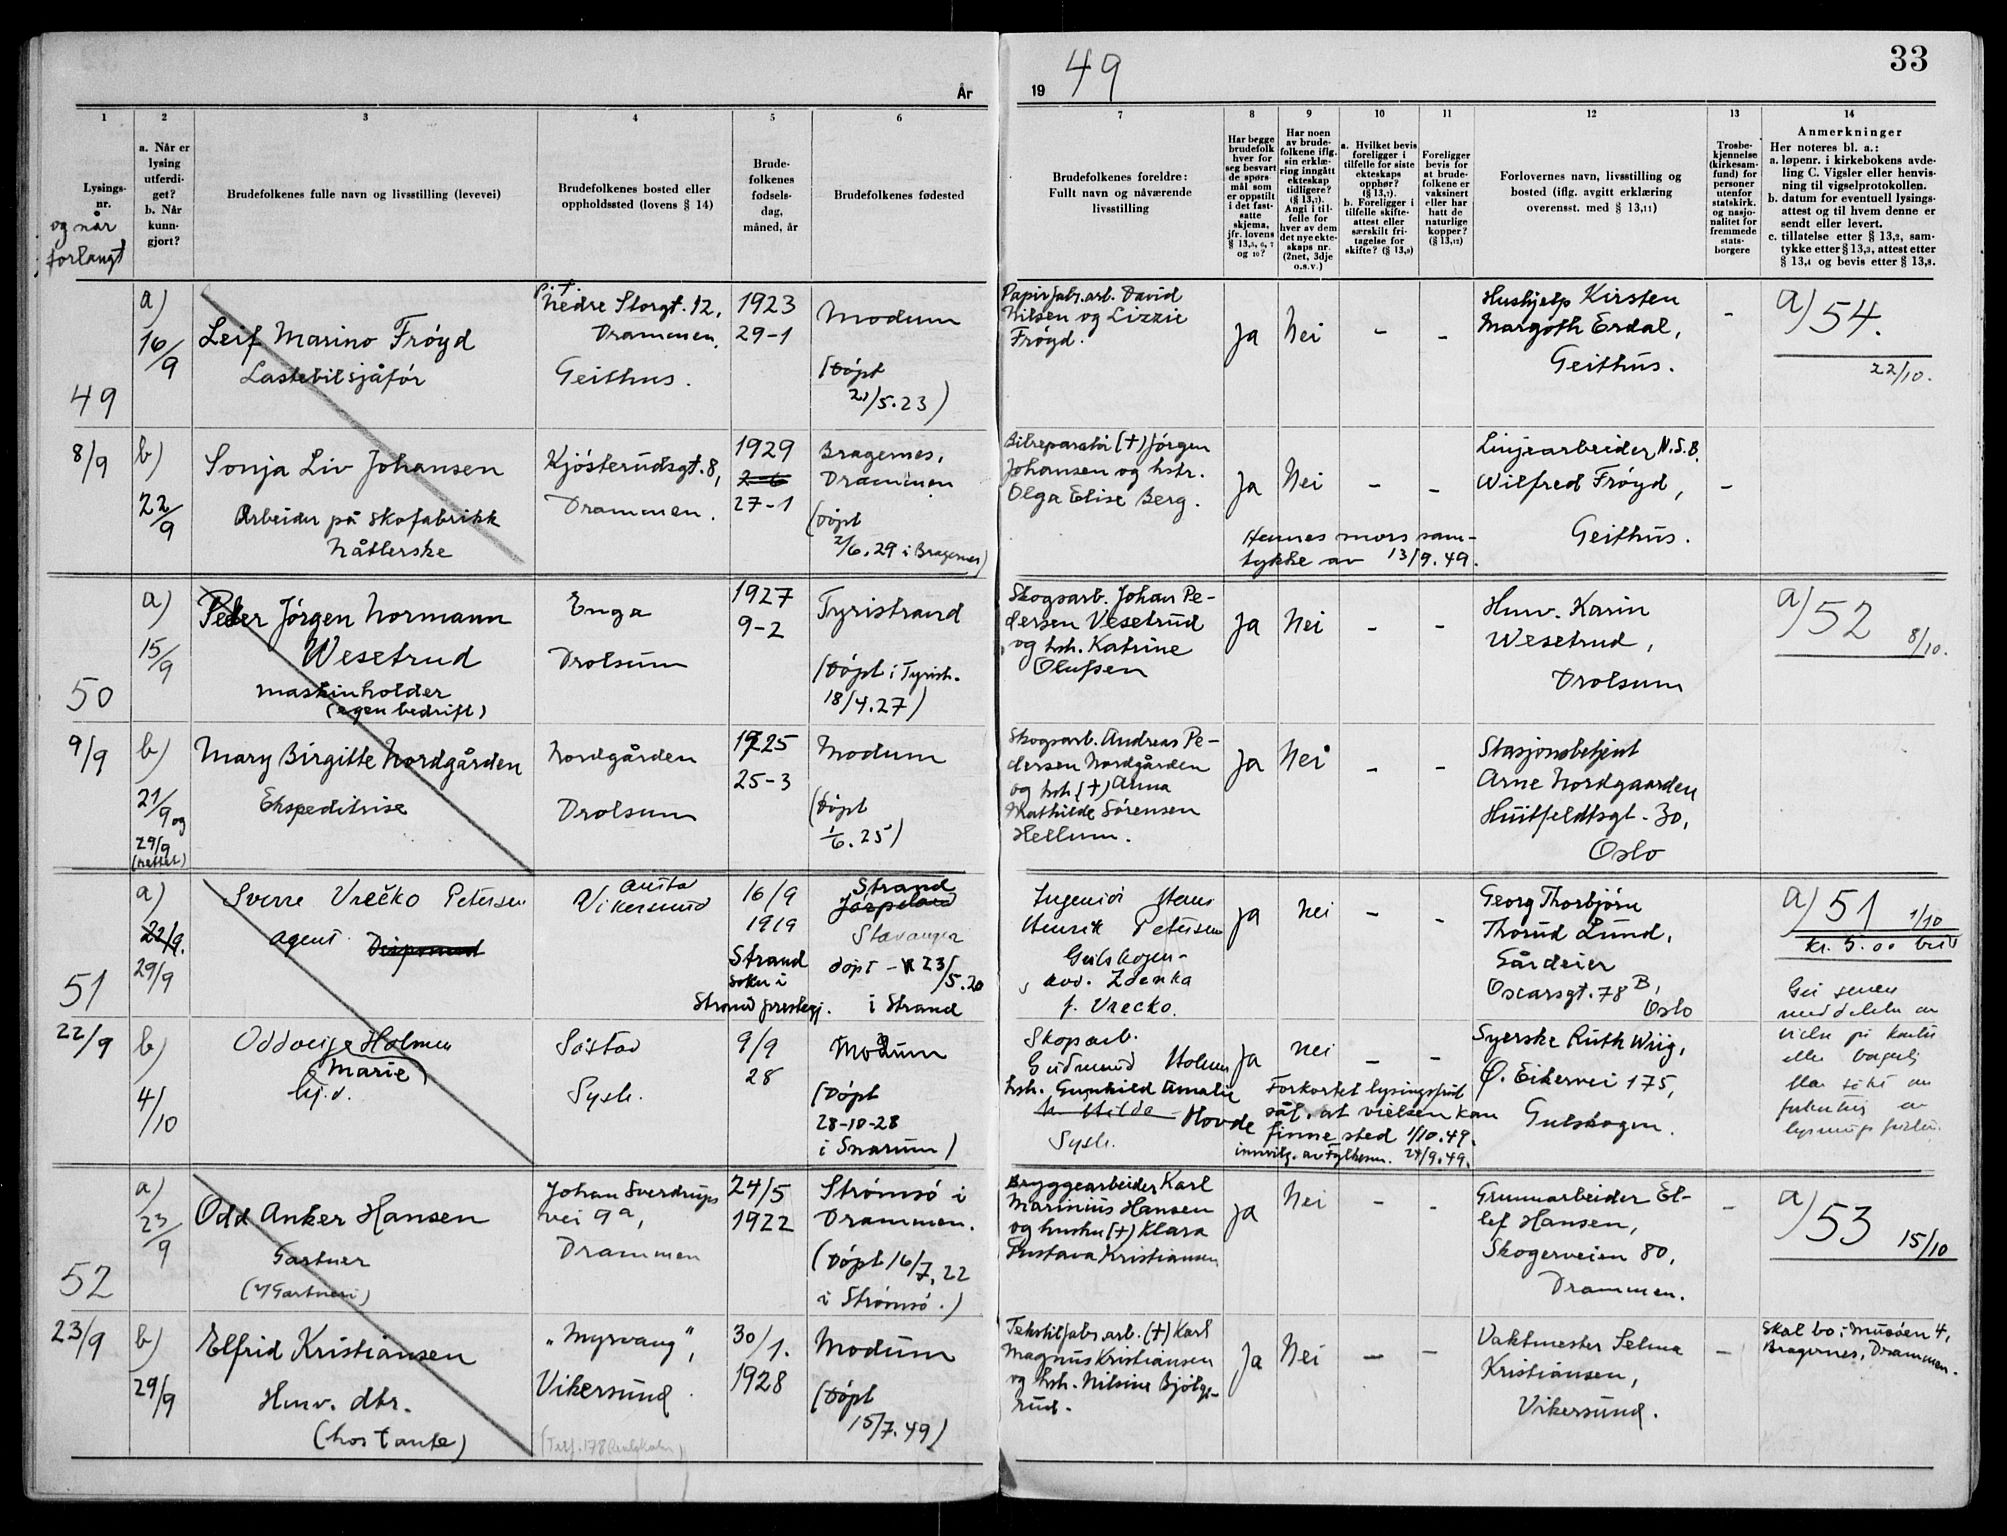 33
År
19 49
1
2
3
4
5
6
7
8
9
10
11
12
13
14
Lysings-
nr.
og når
forlangt
a. Når er
lysing
utferdi-
get?
b. Når
kunn-
gjort?
Brudefolkenes fulle navn og livsstilling (levevei)
Brudefolkenes bosted eller
oppholdssted (lovens § 14)
Brude-
folkenes
fødsels-
dag,
måned, år
Brudefolkenes fødested
Brudefolkenes foreldre:
Fullt navn og nåværende
livsstilling
Har begge
brudefolk
hver for
seg besvart
de spørs-
mål som
er oppstilt
i det fast-
satte
skjema,
jfr. lovens
§ 13,5, 6, 7
og 10?
Har noen
av brude-
folkene iflg.
sin erklæ-
ring inngått
ekteskap
tidligere?
(§ 13,7).
Angi i til-
felle for
hver av dem
det nye ekte-
skaps nr.
(2net, 3dje
o.s.v.)
a. Hvilket bevis
foreligger i
tilfelle for siste
ekteskaps
opphør?
(§ 13,7).
b. Foreligger i
tilfelle skifte-
attest eller
særskilt fri-
tagelse for
skifte? (§ 13,8)
Foreligger
bevis for
at brude-
folkene er
vaksinert
eller har
hatt de
naturlige
kopper?
(§ 13,12)
Forlovernes navn, livsstilling og
bosted (iflg. avgitt erklæring
overensst. med § 13,11)
Trosbe-
kjennelse
(kirkesam-
fund) for
personer
utenfor
statskirk.
og nasjo-
nalitet for
fremmede
stats-
borgere
Anmerkninger
Her noteres bl. a.:
a. løpenr. i kirkebokens avde-
ling C. Vigsler eller henvis-
ning til vigselprotokollen.
b. datum for eventuell lysings-
attest og til hvem denne er
sendt eller levert.
c. tillatelse etter § 13,2, sam-
tykke etter § 13,3, attest etter
§ 13,4 og bevis etter § 13,8.
49
8/9
a)
16/9
Leif Marino Frøyd
Lastebilsjåfør
p.t.
Nedre Storgt. 12,
Drammen.
Geithus.
1923
29-1
Modum
(Døpt
21/5.23)
Papirfabr.arb. David
Nilsen og Lizzie
Frøyd.
Ja
Nei
–
–
Hushjelp Kirsten
Margoth Erdal,
Geithus.
–
a) 54.
22/10.
b)
22/9
Sonja Liv Johansen
Arbeider på skofabrikk
Nåtlerske
Kjøsterudsgt. 8,
Drammen.
1929
2-6
27-1
Bragernes,
Drammen
(Døpt
2/6.29 i Bragernes)
Bilreparatør (+) Jørgen
Johansen og hstr.
Olga Elise Berg.
Ja
Nei
–
–
Hennes mors sam-
tykke av 13/9.49.
Linjearbeider N.S.B.
Wilfred Frøyd,
Geithus.
–
50
9/9
a)
15/9
Peder Jørgen Normann
Wesetrud
maskinholder
(egen bedrift)
Enga
Drolsum
1927
9-2
Tyristrand
(Døpt i Tyrist.
18/4.27)
Skogsarb. Johan Pe-
dersen Vesetrud
og hstr. Katrine
Olufsen
Ja
Nei
–
–
Hmv. Karin
Wesetrud,
Drolsum
a) 52
8/10.
b)
21/9 og
29/9
(rettet)
Mary Birgitte Nordgården
Ekspeditrise
Nordgården
Drolsum
1925
25-3
Modum
(Døpt
1/6.25)
Skogsarb. Andreas Pe-
dersen Nordgården
og hstr. (+) Anna
Mathilde Sørensen
Hellum.
Ja
Nei
–
–
Stasjonsbetjent
Arne Nordgaarden
Huitfeldtsgt. 30,
Oslo
51
22/9
a)
22/9.
29/9
Sverre Vrečko Petersen
agent
Vikersund
16/9
1919
Strand
sokn i
Strand prestegj.
Strand
Jørpeland
Stavanger
døpt – 23/5.20
i Strand
Ingeniør Hans
Henrik Petersen
Gulskogen
Zdenka
f. Vrecko.
Ja
Nei
–
–
Georg Thorbjørn
Thorud Lund,
Gårdeier
Oscarsgt. 78 B,
Oslo
a) 51
1/10
kr. 5.00
b)
4/10
Oddveig Holmen
Marie
hj.d.
Søstad
Sysle.
9/9
28
Modum
(Døpt
28-10-28
i Snarum)
Skogarb.
Gudmund Holmen
hstr. Gunhild Amalie
Hovde
Sysle.
Ja
Nei
–
–
Forkortet lysingsfrist
sål. at vielsen kan
finne sted 1/10.49.
innvilg. av Fylkesm. 24/9.49.
Syerske Ruth Wiig,
Ø. Eikervei 175,
Gulskogen.
52
23/9
a)
23/9
Odd Anker Hansen
Gartner
(i Gartneri)
Johan Sverdrups
vei 9a,
Drammen
24/5
1922
Strømsø i
Drammen.
(Døpt 16/7.22
i Strømsø.)
Bryggearbeider Karl
Marinius Hansen
og hustru (+) Klara
Gustava Kristiansen
Ja
Nei
–
–
Grunnarbeider El-
lef Hansen,
Skogerveien 80,
Drammen.
–
a) 53
15/10
b)
29/9
Elfrid Kristiansen
Hmv. dtr.
(hos tante)
"Myrvang",
Vikersund.
30/1.
1928
Modum
(Døpt
15/7.49)
Tekstilfabr.arb. (+) Karl
Magnus Kristiansen
og hstr. Nilsine Bjølge-
rud.
Ja
Nei
–
–
Vaktmester Selma
Kristiansen,
Vikersund.
–
Skal bo: Musøen 4,
Bragernes, Drammen.